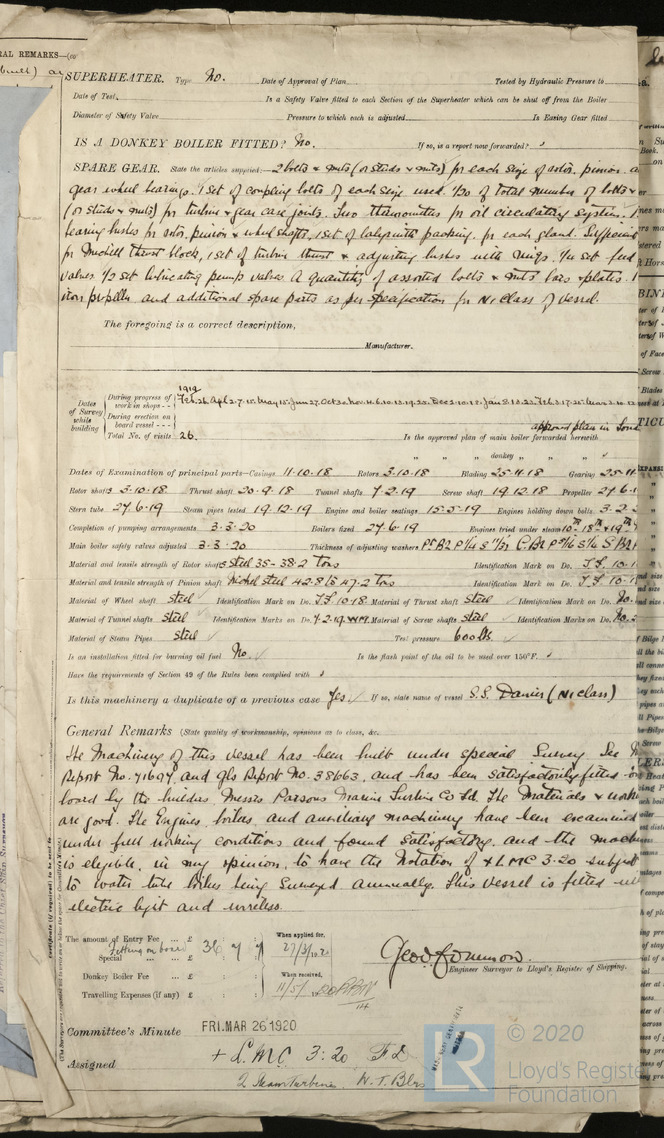 RAL REMARKS—(
built)
SUPERHEATER. Type No. Date of Approval of Plan Tested by Hydraulic Pressure to
Date of Test Is a Safety Valve fitted to each Section of the Superheater which can be shut off from the Boiler
Diameter of Safety Valve Pressure to which each is adjusted Is Easing Gear fitted
IS A DONKEY BOILER FITTED? No. If so, is a report now forwarded?
SPARE GEAR. State the articles supplied:— 2 bolts & nuts (or studs & nuts) for each size of rotor, pinion
gear wheel bearings. 1 set of coupling bolts of each size used. 1/20 of total number of bolts &
(or studs & nuts) for turbine & gear case joints. Two thermometers for oil circulating system. 1
bearing bushes for rotor, pinion & wheel shafts, 1 set of labyrinth packing, for each gland.
for Michell thrust block, 1 set of turbine thrust & adjusting bushes with rings. 1/4 set feed
valves 1/2 set lubricating pump valves A quantity of assorted bolts & nuts bars & plates. 1
iron propeller and additional spare parts as per specification for N1 Class of vessel.
The foregoing is a correct description,
Manufacturer.
Dates of Survey while building
During progress of work in shops - -
1919
Feb. 26. Apl. 2. 7. 15. May 15. Jun 27. Oct 30. Nov. 4. 6. 10. 13. 19. 25. Dec 2. 10. 18. Jan 8. 13. 23. Feb. 3. 17. 25. Mar 3. 10. 12
During erection on board vessel - - -
Total No. of visits 26.
approved plan in Lond
Is the approved plan of main boiler forwarded herewith
" " " donkey "
Dates of Examination of principal parts—Casings 11.10.18 Rotors 3.10.18 Blading 25.4.18 Gearing 25.11
Rotor shaft 3.10.18 Thrust shaft 20.9.18 Tunnel shafts 7.2.19 Screw shaft 19.12.18 Propeller 27.6.1
Stern tube 27.6.19 Steam pipes tested 19.12.19 Engine and boiler seatings 15.5.19 Engines holding down bolts 3.2.2
Completion of pumping arrangements 3.3.20 Boilers fixed 27.6.19 Engines tried under steam 10th 18th & 19th
Main boiler safety valves adjusted 3.3.20 Thickness of adjusting washers
Material and tensile strength of Rotor shaft Steel 35-38.2 tons Identification Mark on Do. J.F. 10.1
Material and tensile strength of Pinion shaft Nickel steel 42.8 to 47.2 tons Identification Mark on Do. J.F. 10.1
Material of Wheel shaft steel Identification Mark on Do. J.F. 10.18 Material of Thrust shaft steel Identification Mark on Do. No.
Material of Tunnel shafts steel Identification Marks on Do. 7.2.19. Material of Screw shafts steel Identification Marks on Do. No.
Material of Steam Pipes steel Test pressure 600 lbs
Is an installation fitted for burning oil fuel No. Is the flash point of the oil to be used over 150°F.
Have the requirements of Section 49 of the Rules been complied with
Is this machinery a duplicate of a previous case Yes. If so, state name of vessel S.S. Danier (N1 Class)
General Remarks (State quality of workmanship, opinions as to class, &c.
The Machinery of this vessel has been built under special Survey See
Report No. 71697, and Gls Report No. 38663, and has been satisfactorily fitted on
board by the builders, Messrs Parsons Marine Turbine Co Ltd. The Materials & work
are good. The Engines, boilers, and auxiliary machinery have been examined
under full working conditions and found satisfactory, and the machin
is eligible, in my opinion, to have the Notation of + LMC 3.20 subject
to water tube boilers being surveyed annually. This vessel is fitted with
electric light and wireless.
Certificate (if required) to be sent to
The amount of Entry Fee ... £ When applied for,
Fitting on board
Special ... £ 36 27/3/1920
Donkey Boiler Fee ... £ When received,
Travelling Expenses (if any) £ 11/5/
Engineer Surveyor to Lloyd's Register of Shipping.
Committee's Minute FRI. MAR 26 1920
Assigned + L.M.C. 3.20 F.D.
2 Steam Turbines. W.T. Blrs
LR © 2020
Lloyd's Registe
Foundation